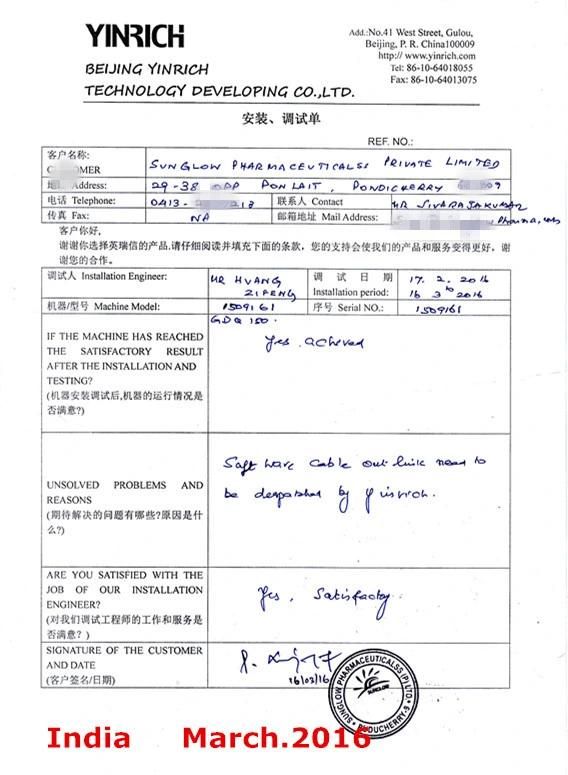 YINRICH
BEIJING YINRICH
TECHNOLOGY DEVELOPING CO.,LTD.
Add.:No.41 West Street, Gulou,
Beijing, P. R. China100009
http:// www.yinrich.com
Tel: 86-10-64018055
Fax: 86-10-64013075
安装、调试单
REF. NO.:
客户名称: SUNGLOW PHARMACEUTICALSS PRIVATE LIMITED
Address: 29-38 OPP PONLAIT, PONDICHERRY
电话 Telephone: 0413- 联系人 Contact MR SIVARAJAKUMAR
传真 Fax: NA 邮箱地址 Mail Address:
客户你好,
谢谢你选择英瑞信的产品,请仔细阅读并填充下面的条款，您的支持会使我们的产品和服务变得更好，谢
谢您的合作。
调试人 Installation Engineer: MR HUANG ZIFENG
调 试 日 期 Installation period: 17. 2. 2016
16 3 2016
机器/型号 Machine Model: 1509161 序号 Serial NO.: 1509161
GDQ 150.
IF THE MACHINE HAS REACHED
THE SATISFACTORY RESULT
AFTER THE INSTALLATION AND
TESTING?
(机器安装调试后,机器的运行情况是
否满意?)
Yes. acheved
UNSOLVED PROBLEMS AND
REASONS
(期待解决的问题有哪些?原因是什
么?)
Soft ware cable out link need to
be despatched by Yinrich.
ARE YOU SATISFIED WITH THE
JOB OF OUR INSTALLATION
ENGINEER?
(对我们调试工程师的工作和服务是
否满意? )
Yes, Satisfactory
SIGNATURE OF THE CUSTOMER
AND DATE
(客户签名/日期)
16/03/16
SUNGLOW PHARMACEUTICALSS (P) LTD.
SUNGLOW
PUDUCHERRY-9
India March.2016